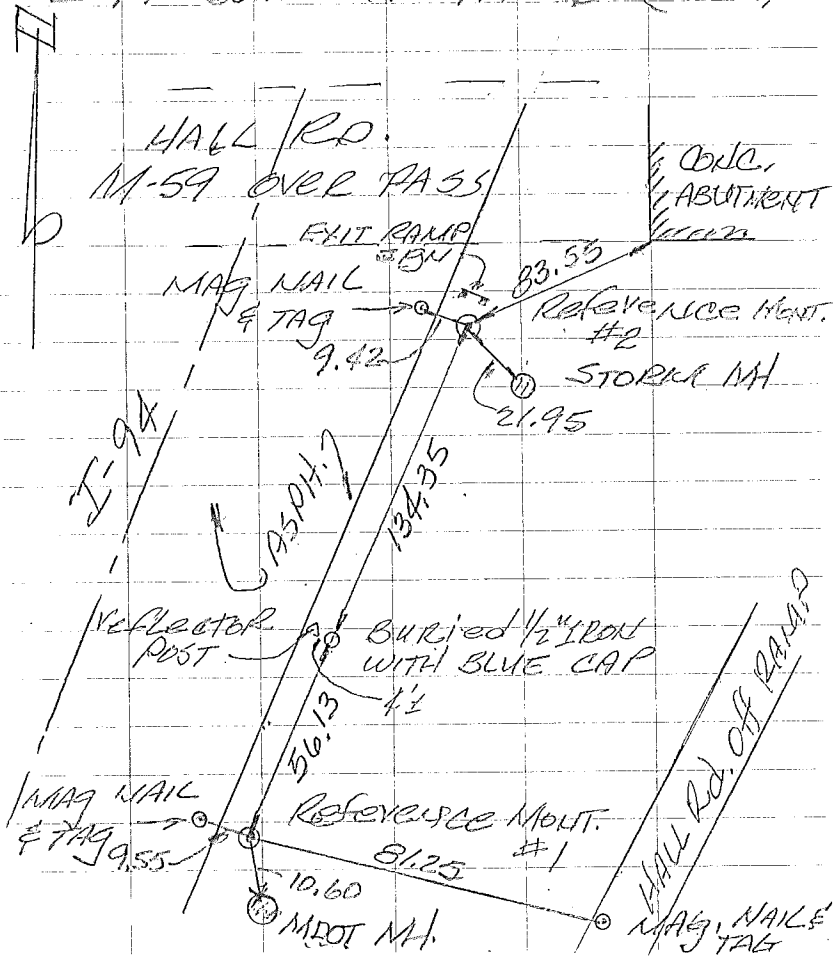 HALL RD.
M-59 OVER PASS
CONC.
ABUTMENT
EXIT RAMP
SIGN
83.55
MAG NAIL
& TAG
9.42
Reference MONT.
#2
STORM MH
21.95
I-94
ASPH.
134.35
reflector
POST
BURIED 1/2" IRON
WITH BLUE CAP
4'±
56.13
MAG NAIL
& TAG
9.55
Reference MONT.
#1
81.25
10.60
MDOT MH.
HALL Rd. Off RAMP
MAG. NAIL &
TAG